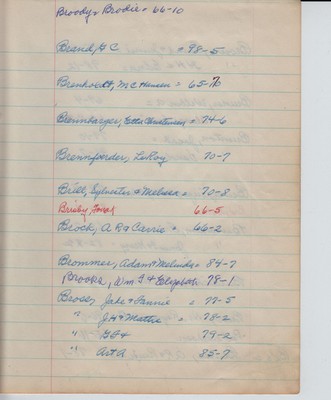 Broody, Brodie = 66-10
Brand, G C = 98-5
Brenhoedt, M C Hansen = 65-
Brennfoerder, LeRoy 70-7
Brill, Sylvester & Melissa = 70-8
Brisby, Frank 66-5
Brock, A R & Carrie = 66-2
Brommer, Adam & Melinda = 84-7
Brooke, Wm F & Elizabeth 78-1
Brose, Jake & Fannie = 77-5
" J H & Mattie = 78-2
" = 79-2
" Art A 85-7